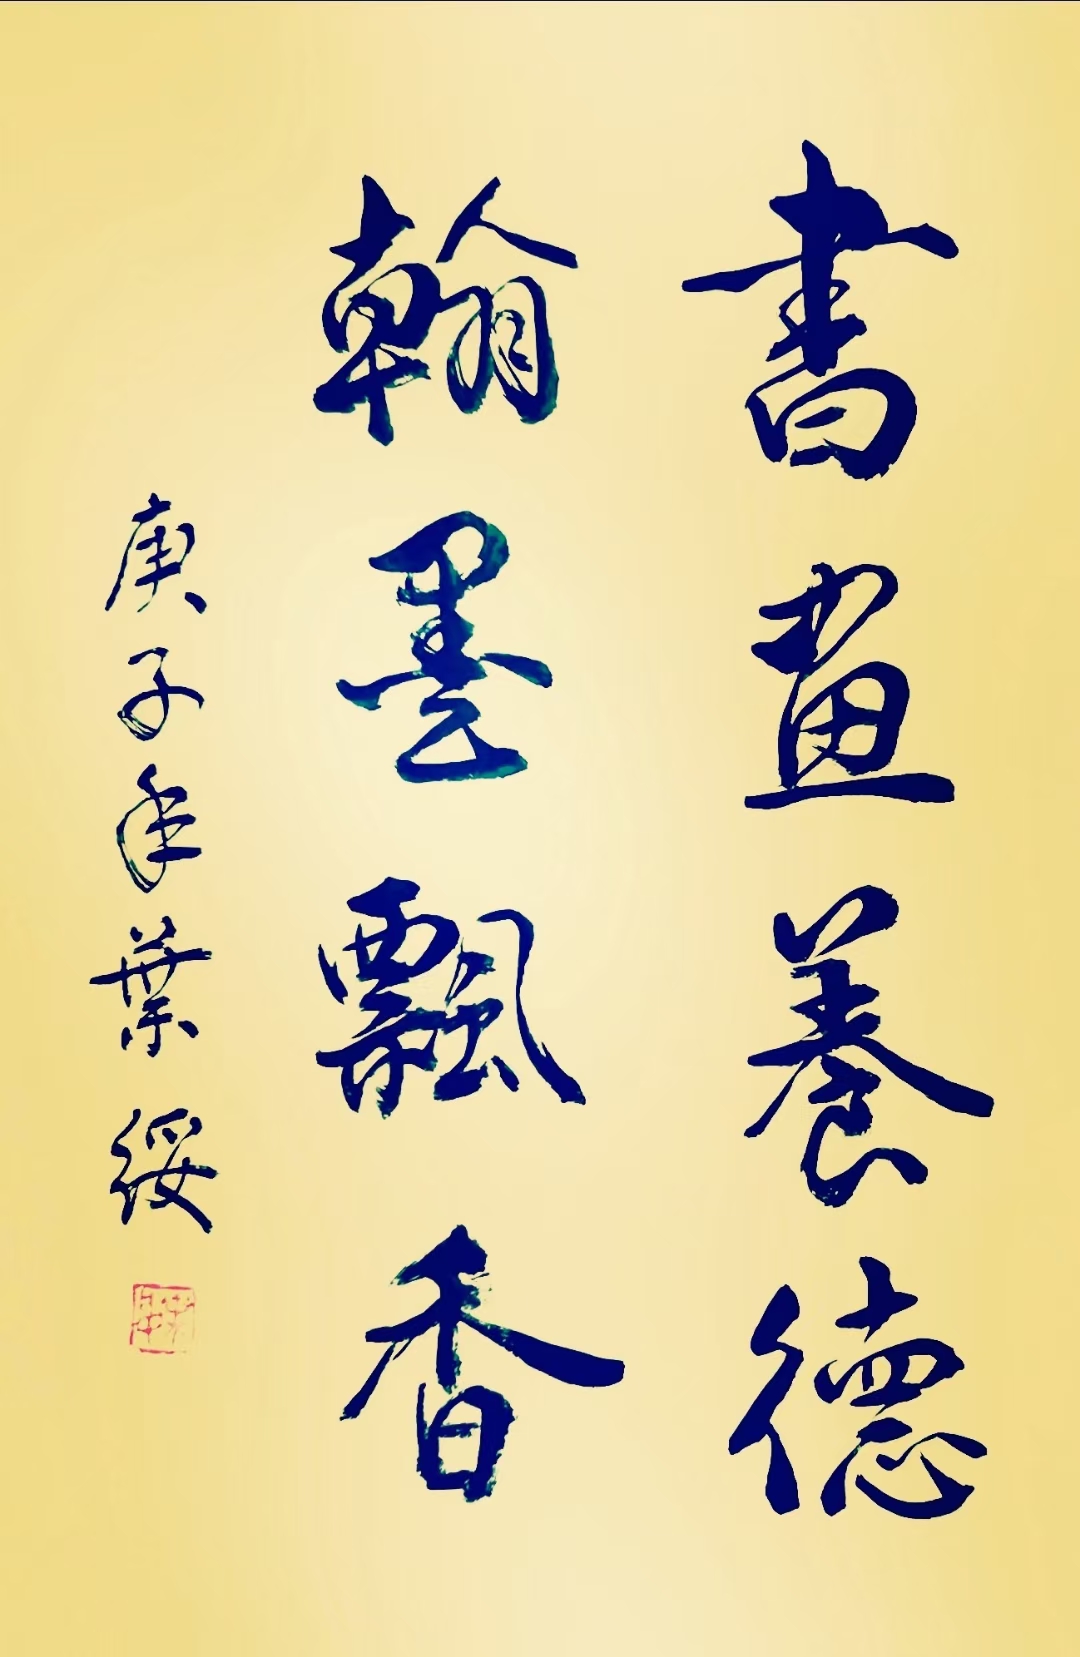 書畫養德
翰墨飄香
庚子年葉綏